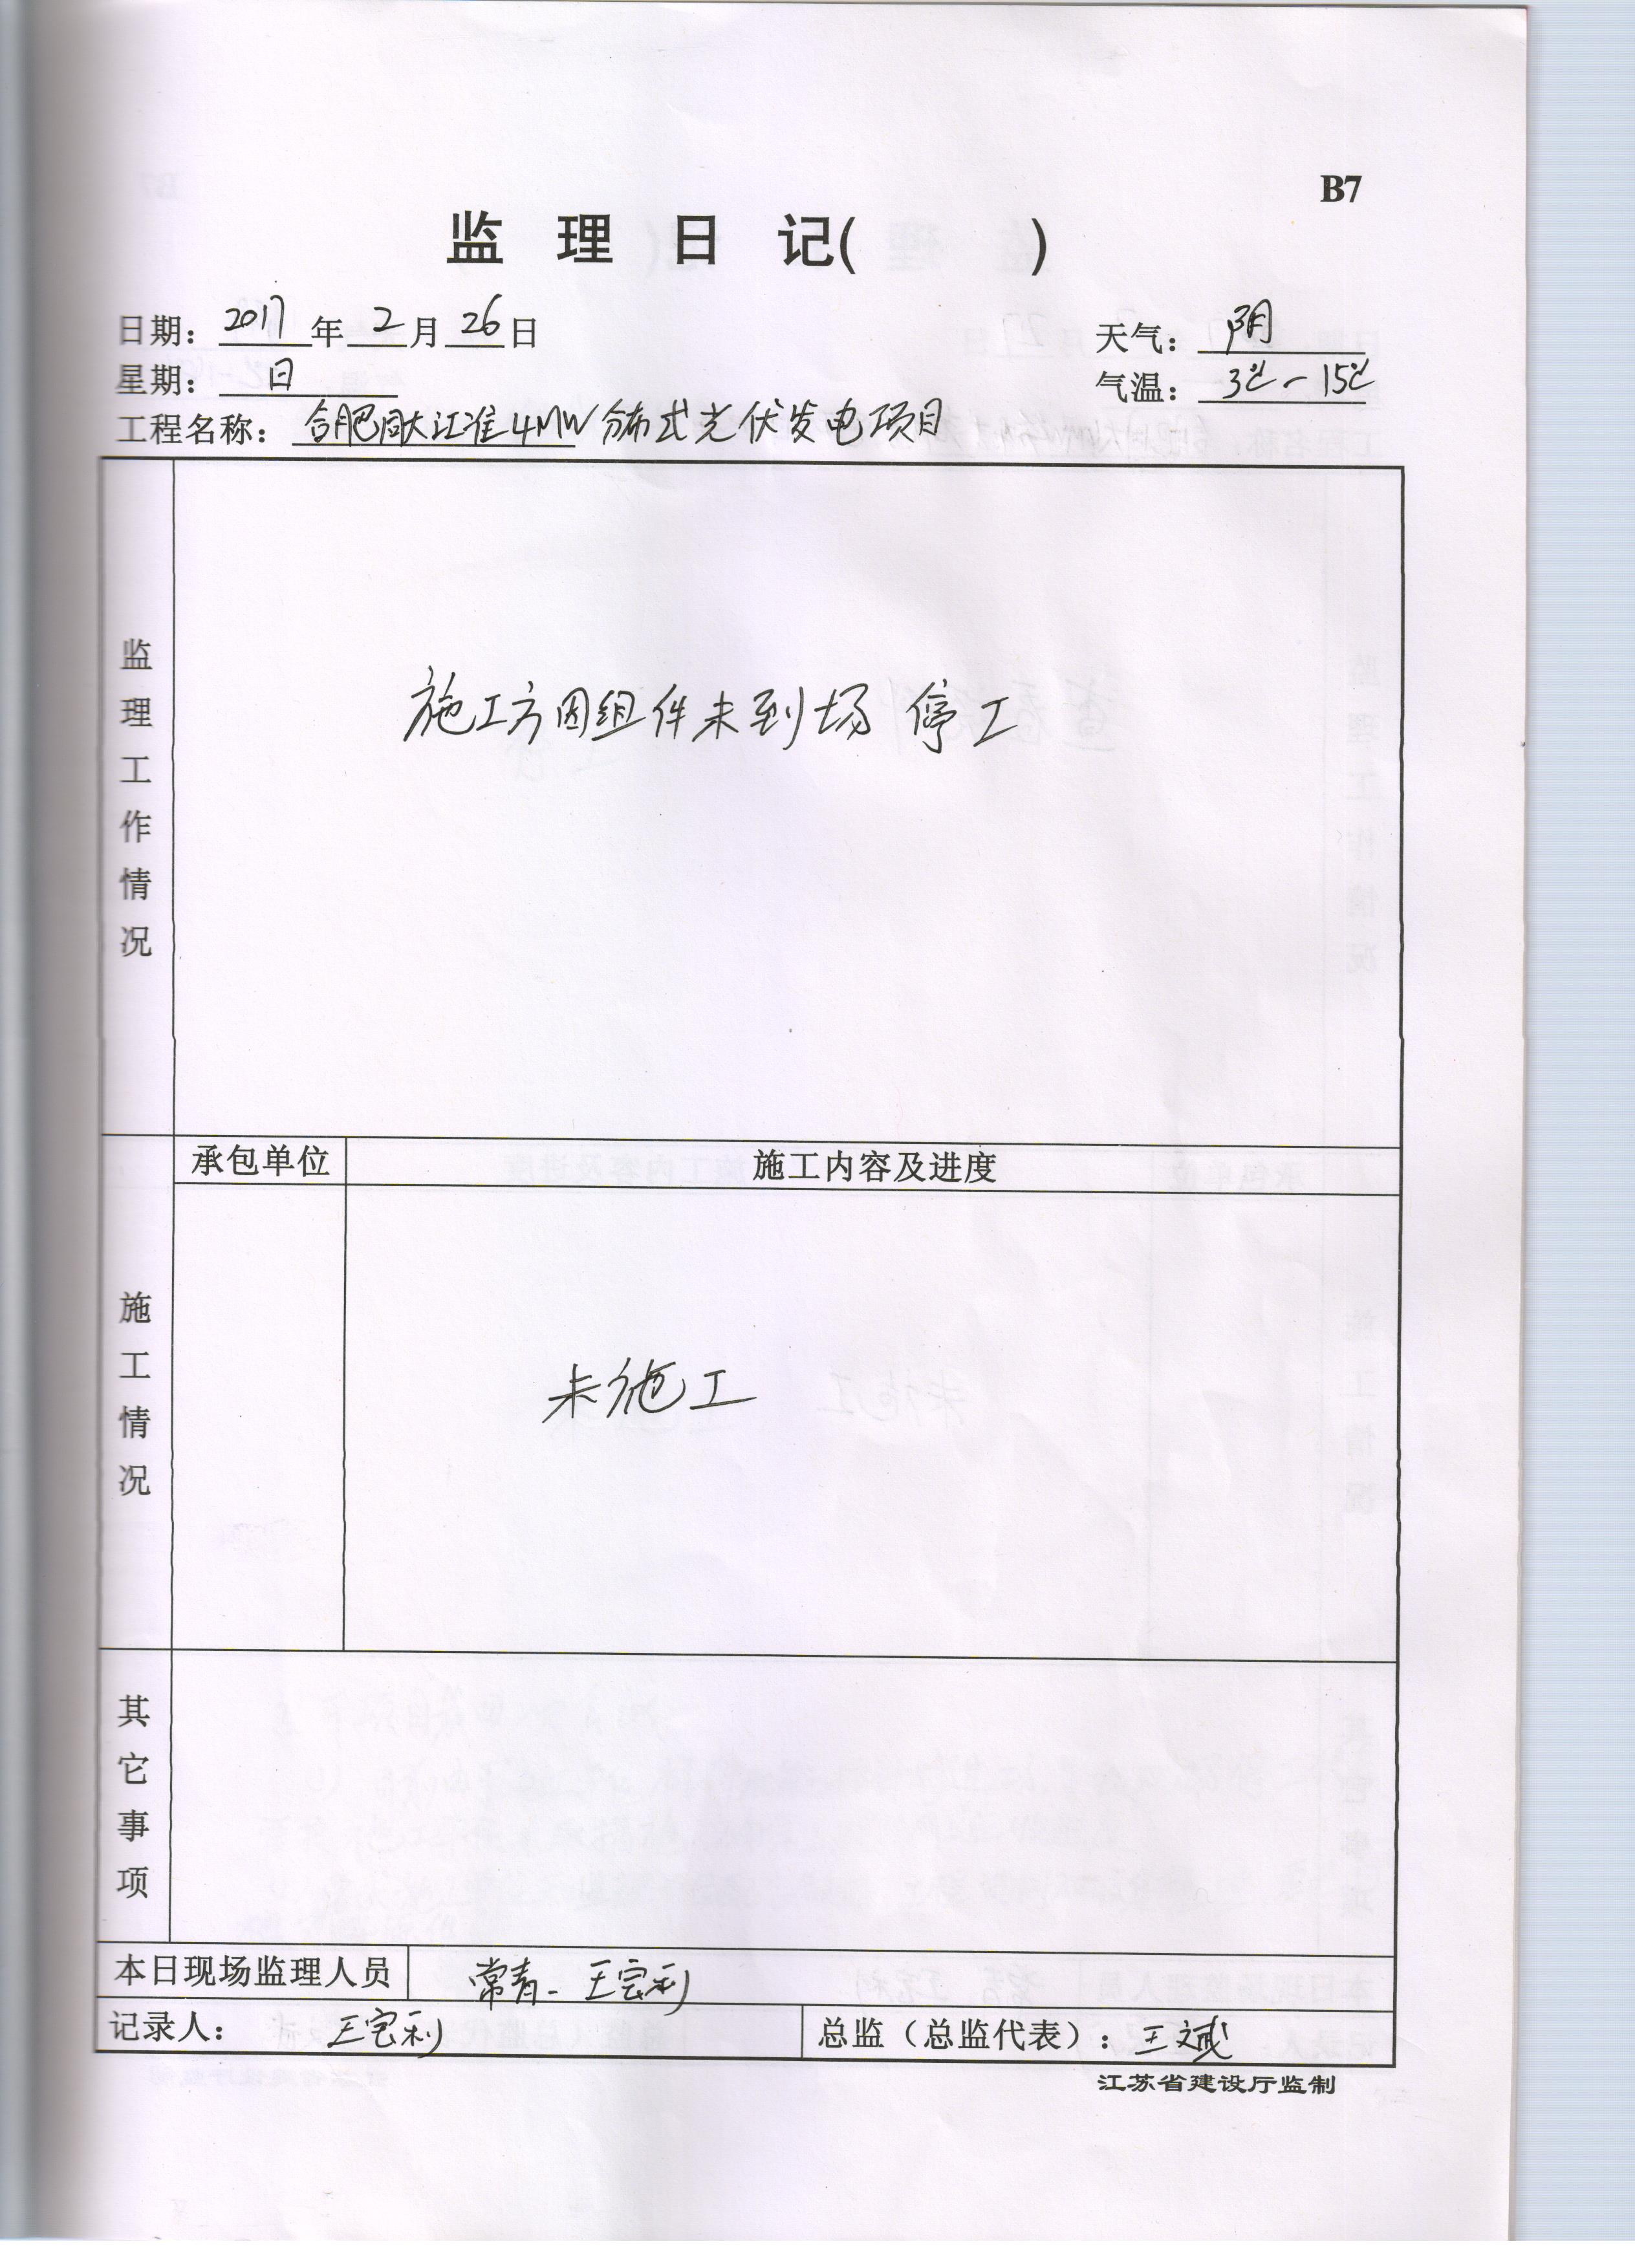 B7
监 理 日 记( )
日期：2017年2月26日
天气：阴
星期：日
气温：3℃-15℃
工程名称：合肥同大江淮4MW分布式光伏发电项目
监理工作情况
施工方因组件未到场 停工
承包单位 施工内容及进度
施工情况
未施工
其它事项
本日现场监理人员 常青、王宝利
记录人：王宝利 总监（总监代表）：王斌
江苏省建设厅监制